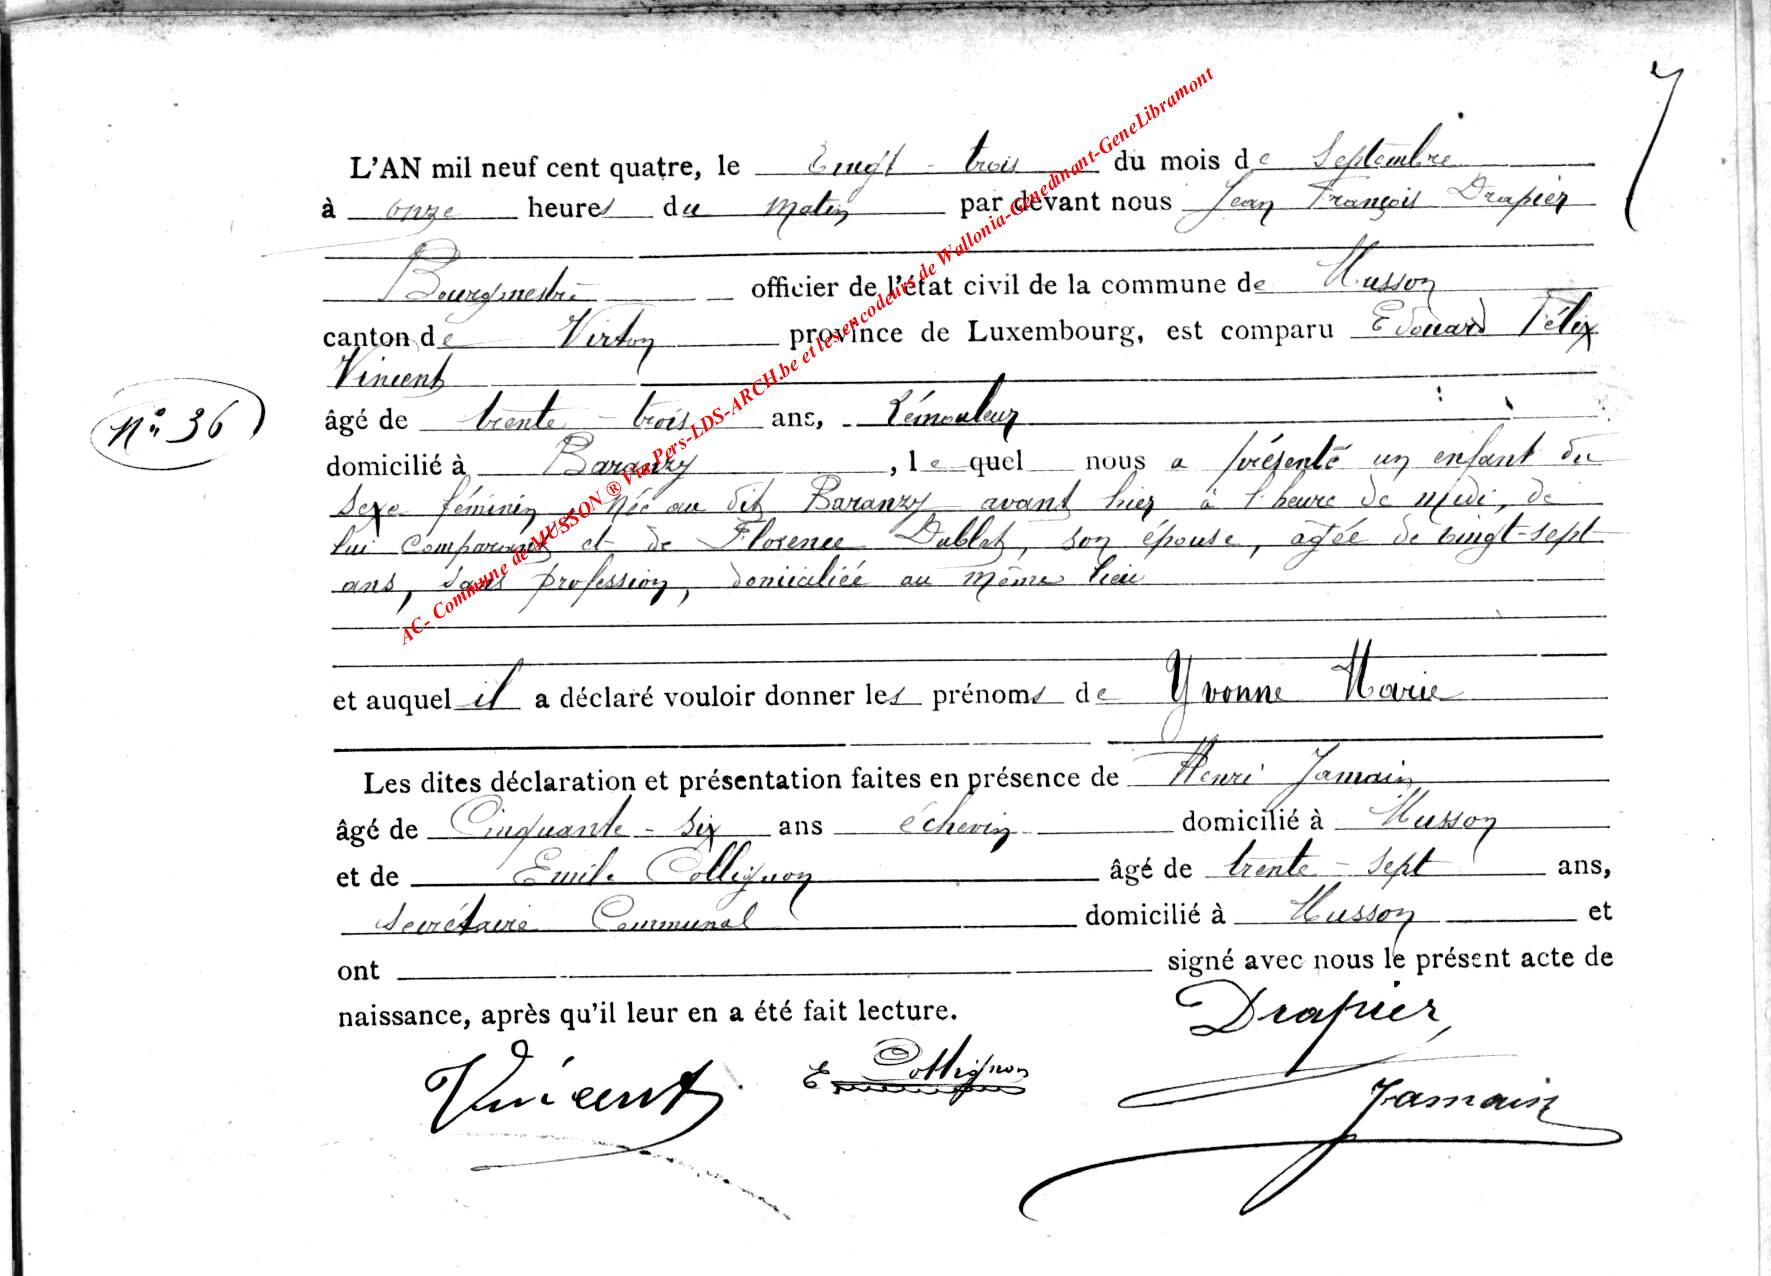 7
L'AN mil neuf cent quatre, le vingt-trois du mois de Septembre
à onze heures du matin par devant nous Jean François Drapier
Bourgmestre officier de l'état civil de la commune de Musson
canton de Virton province de Luxembourg, est comparu Edouard Félix
Vincent
N° 36
âgé de trente-trois ans, Rémouleur
domicilié à Baranzy, lequel nous a présenté un enfant du
sexe féminin, née au dit Baranzy avant hier à l'heure de midi, de
lui comparant et de Florence Dublet, son épouse, agée de vingt-sept
ans, sans profession, domiciliée au même lieu
et auquel il a déclaré vouloir donner les prénoms de Yvonne Marie
Les dites déclaration et présentation faites en présence de Henri Jamain
âgé de Cinquante-six ans échevin domicilié à Musson
et de Emile Collignon âgé de trente-sept ans,
secrétaire Communal domicilié à Musson et
ont signé avec nous le présent acte de
naissance, après qu'il leur en a été fait lecture.
Drapier
Vincent
E Collignon
Jamain
AC- Commune de MUSSON ® Via Pers-LDS-ARCH.be et les encodeurs de Wallonia-Genedinant-GeneLibramont